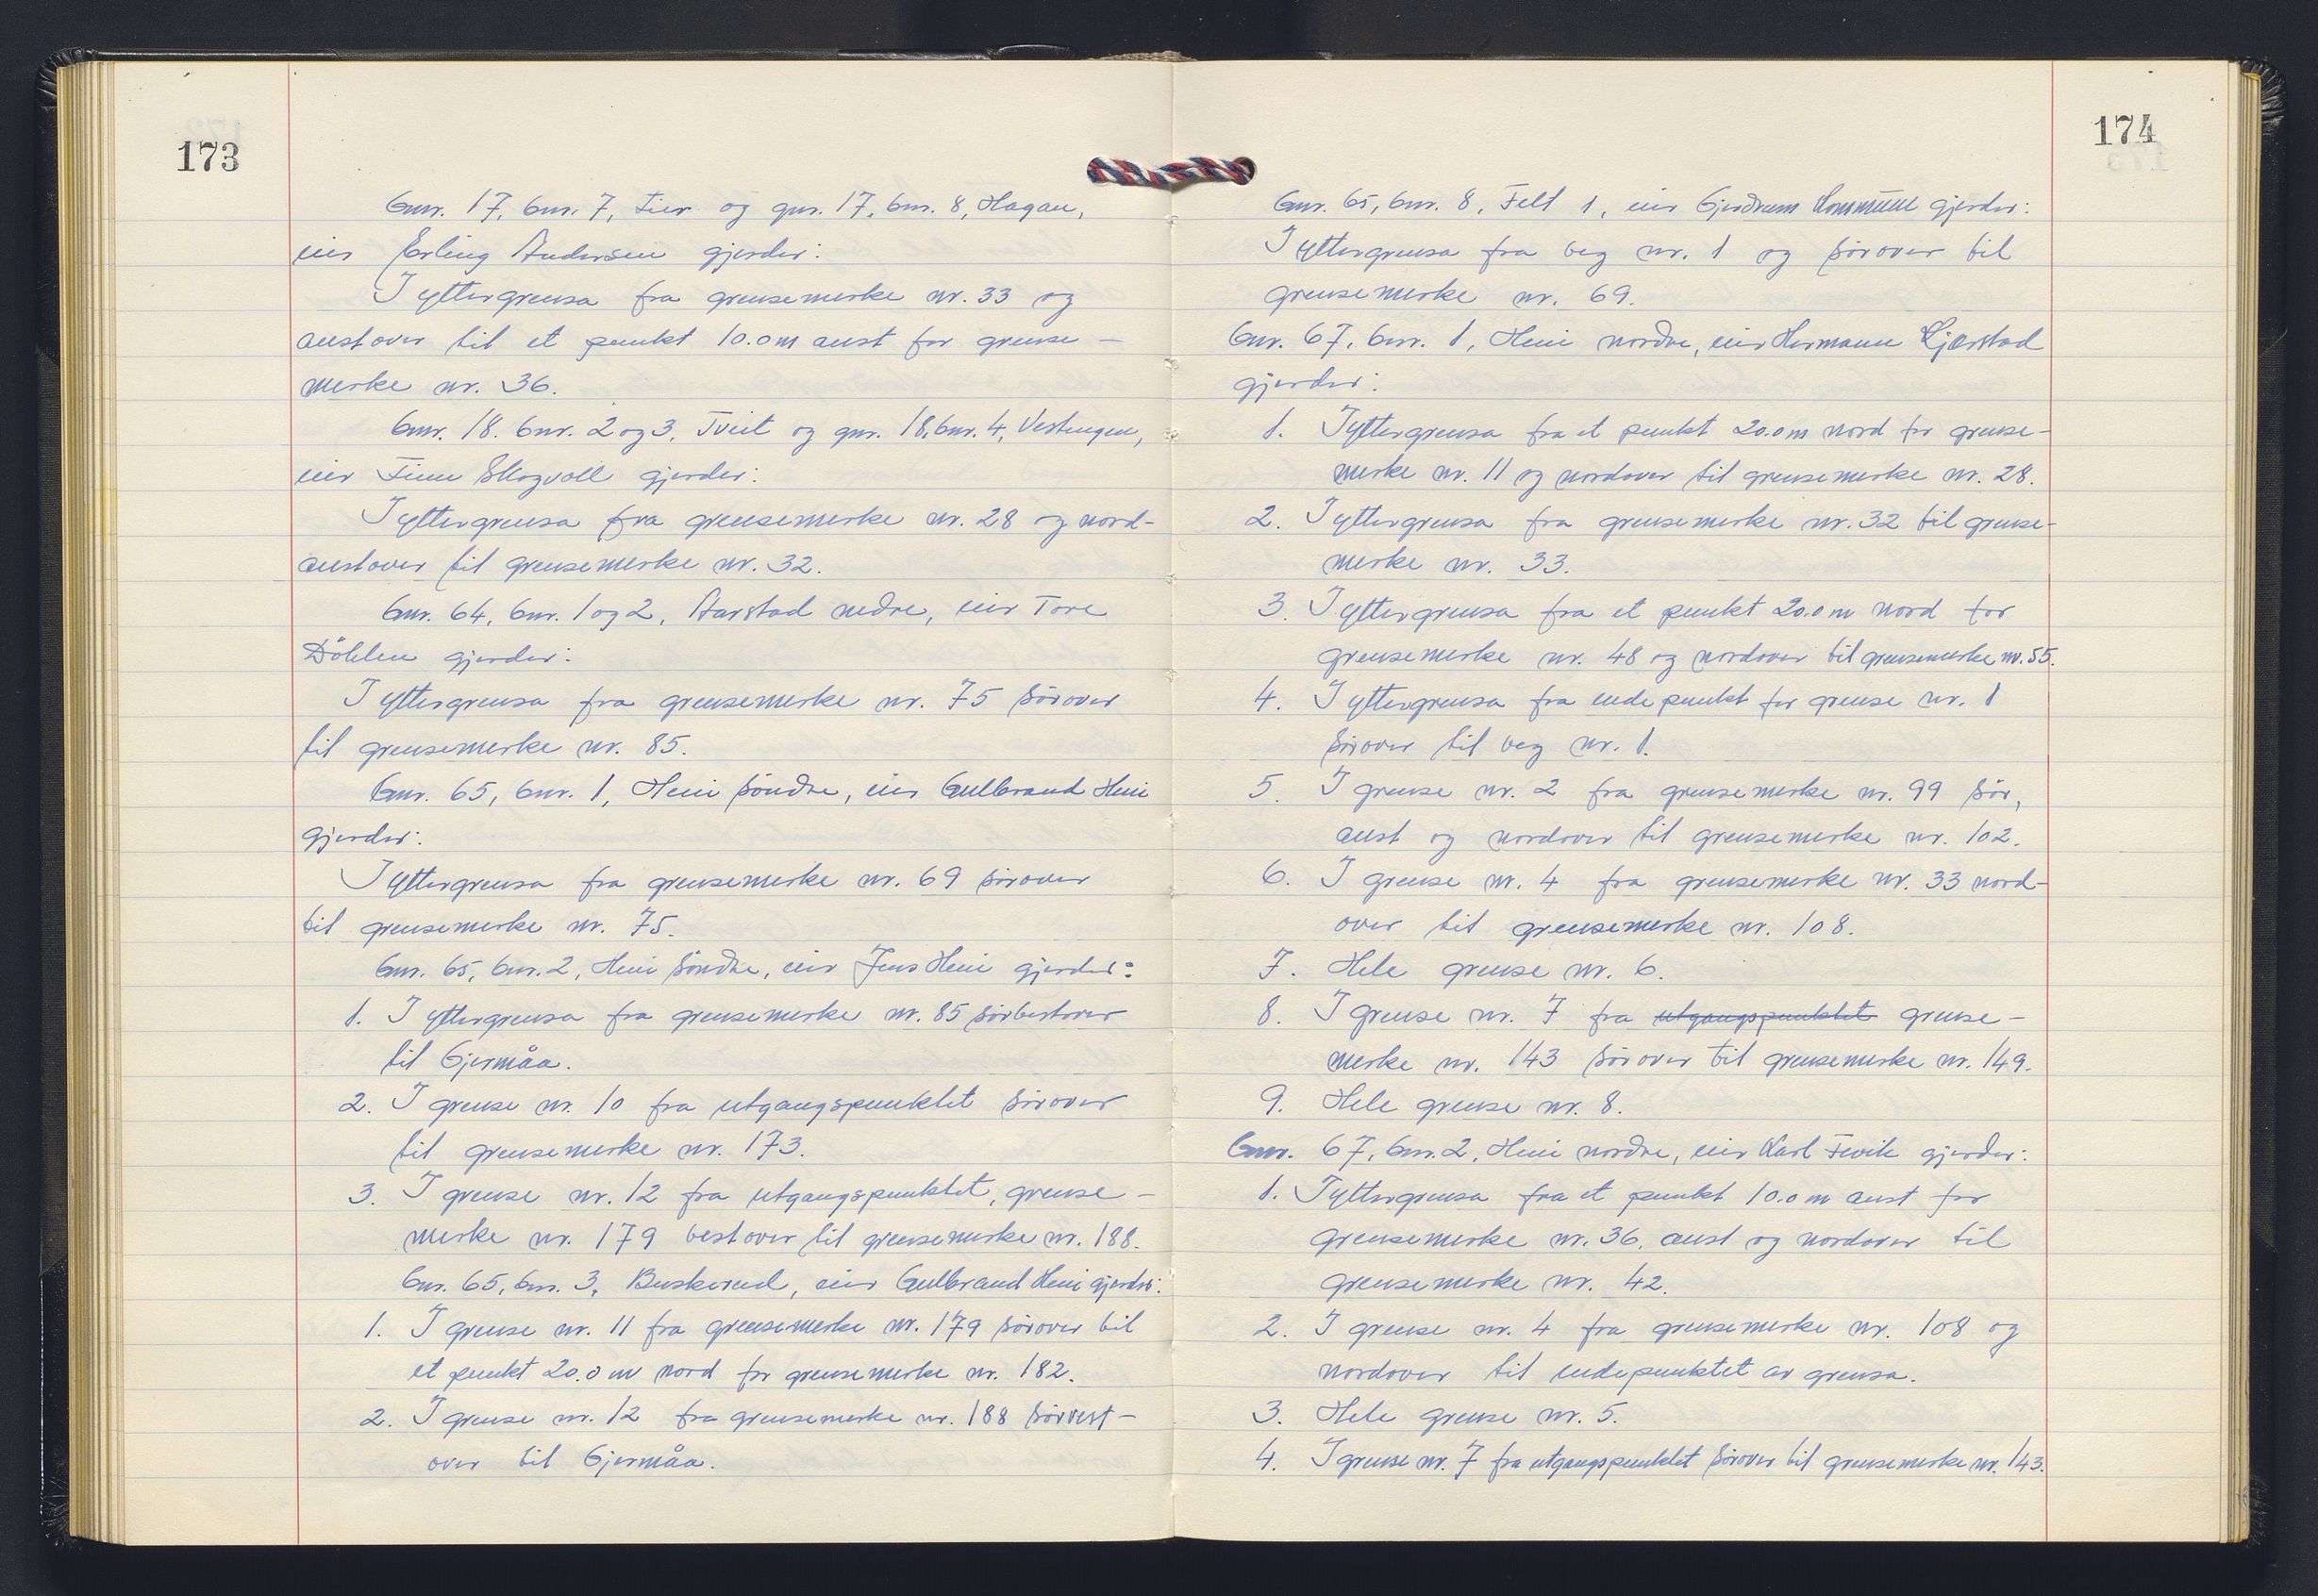 173
Gnr. 17, bnr. 7, Lier og gnr. 17, bnr. 8, Hagan,
eier Erling Andersen gjerder:
I yttergrensa fra grensemerke nr. 33 og
austover til et punkt 10.0 m aust for grense-
merke nr. 36.
Gnr. 18. bnr. 2 og 3, Tveit og gnr. 18, bnr. 4, Vestengen,
eier Finn Skogvoll gjerder:
I yttergrensa fra grensemerke nr. 28 og nord-
austover til grensemerke nr. 32.
Gnr. 64, bnr. 1 og 2, Aarstad nedre, eier Tore
Döhlen gjerder:
I yttergrensa fra grensemerke nr. 75 sörover
til grensemerke nr. 85.
Gnr. 65, bnr. 1, Heni söndre, eier Gulbrand Heni
gjerder:
I yttergrensa fra grensemerke nr. 69 sörover
til grensemerke nr. 75.
Gnr. 65, bnr. 2, Heni söndre, eier Jens Heni gjerder:
1. I yttergrensa fra grensemerke nr. 85 sörvestover
til Gjermåa.
2. I grense nr. 10 fra utgangspunktet sörover
til grensemerke nr. 173.
3. I grense nr. 12 fra utgangspunktet, grense-
merke nr. 179 vestover til grensemerke nr. 188.
Gnr. 65, bnr. 3, Buskerud, eier Gulbrand Heni gjerder:
1. I grense nr. 11 fra grensemerke nr. 179 sörover til
et punkt 20.0 m nord for grensemerke nr. 182.
2. I grense nr. 12 fra grensemerke nr. 188 sörvest-
over til Gjermåa.
174
Gnr. 65, bnr. 8, Felt 1, eier Gjerdrum kommune gjerder:
I yttergrensa fra veg nr. 1 og sörover til
grensemerke nr. 69.
Gnr. 67, bnr. 1, Heni nordre, eier Hermann Kjærstad
gjerder:
1. I yttergrensa fra et punkt 20.0 m nord for grense-
merke nr. 11 og nordover til grensemerke nr. 28.
2. I yttergrensa fra grensemerke nr. 32 til grense-
merke nr. 33.
3. I yttergrensa fra et punkt 20.0 m nord for
grensemerke nr. 48 og nordover til grensemerke nr. 55.
4. I yttergrensa fra endepunkt for grense nr. 1
sörover til veg nr. 1.
5. I grense nr. 2 fra grensemerke nr. 99 sör,
aust og nordover til grensemerke nr. 102.
6. I grense nr. 4 fra grensemerke nr. 33 nord-
over til grensemerke nr. 108.
7. Hele grense nr. 6.
8. I grense nr. 7 fra utgangspunktet grense-
merke nr. 143 sörover til grensemerke nr. 149.
9. Hele grense nr. 8.
Gnr. 67, bnr. 2, Heni nordre, eier Karl Fevik gjerder:
1. I yttergrensa fra et punkt 10.0 m aust for
grensemerke nr. 36, aust og nordover til
grensemerke nr. 42.
2. I grense nr. 4 fra grensemerke nr. 108 og
nordover til endepunktet av grensa.
3. Hele grense nr. 5.
4. I grense nr. 7 fra utgangspunktet sörover til grensemerke nr. 143.